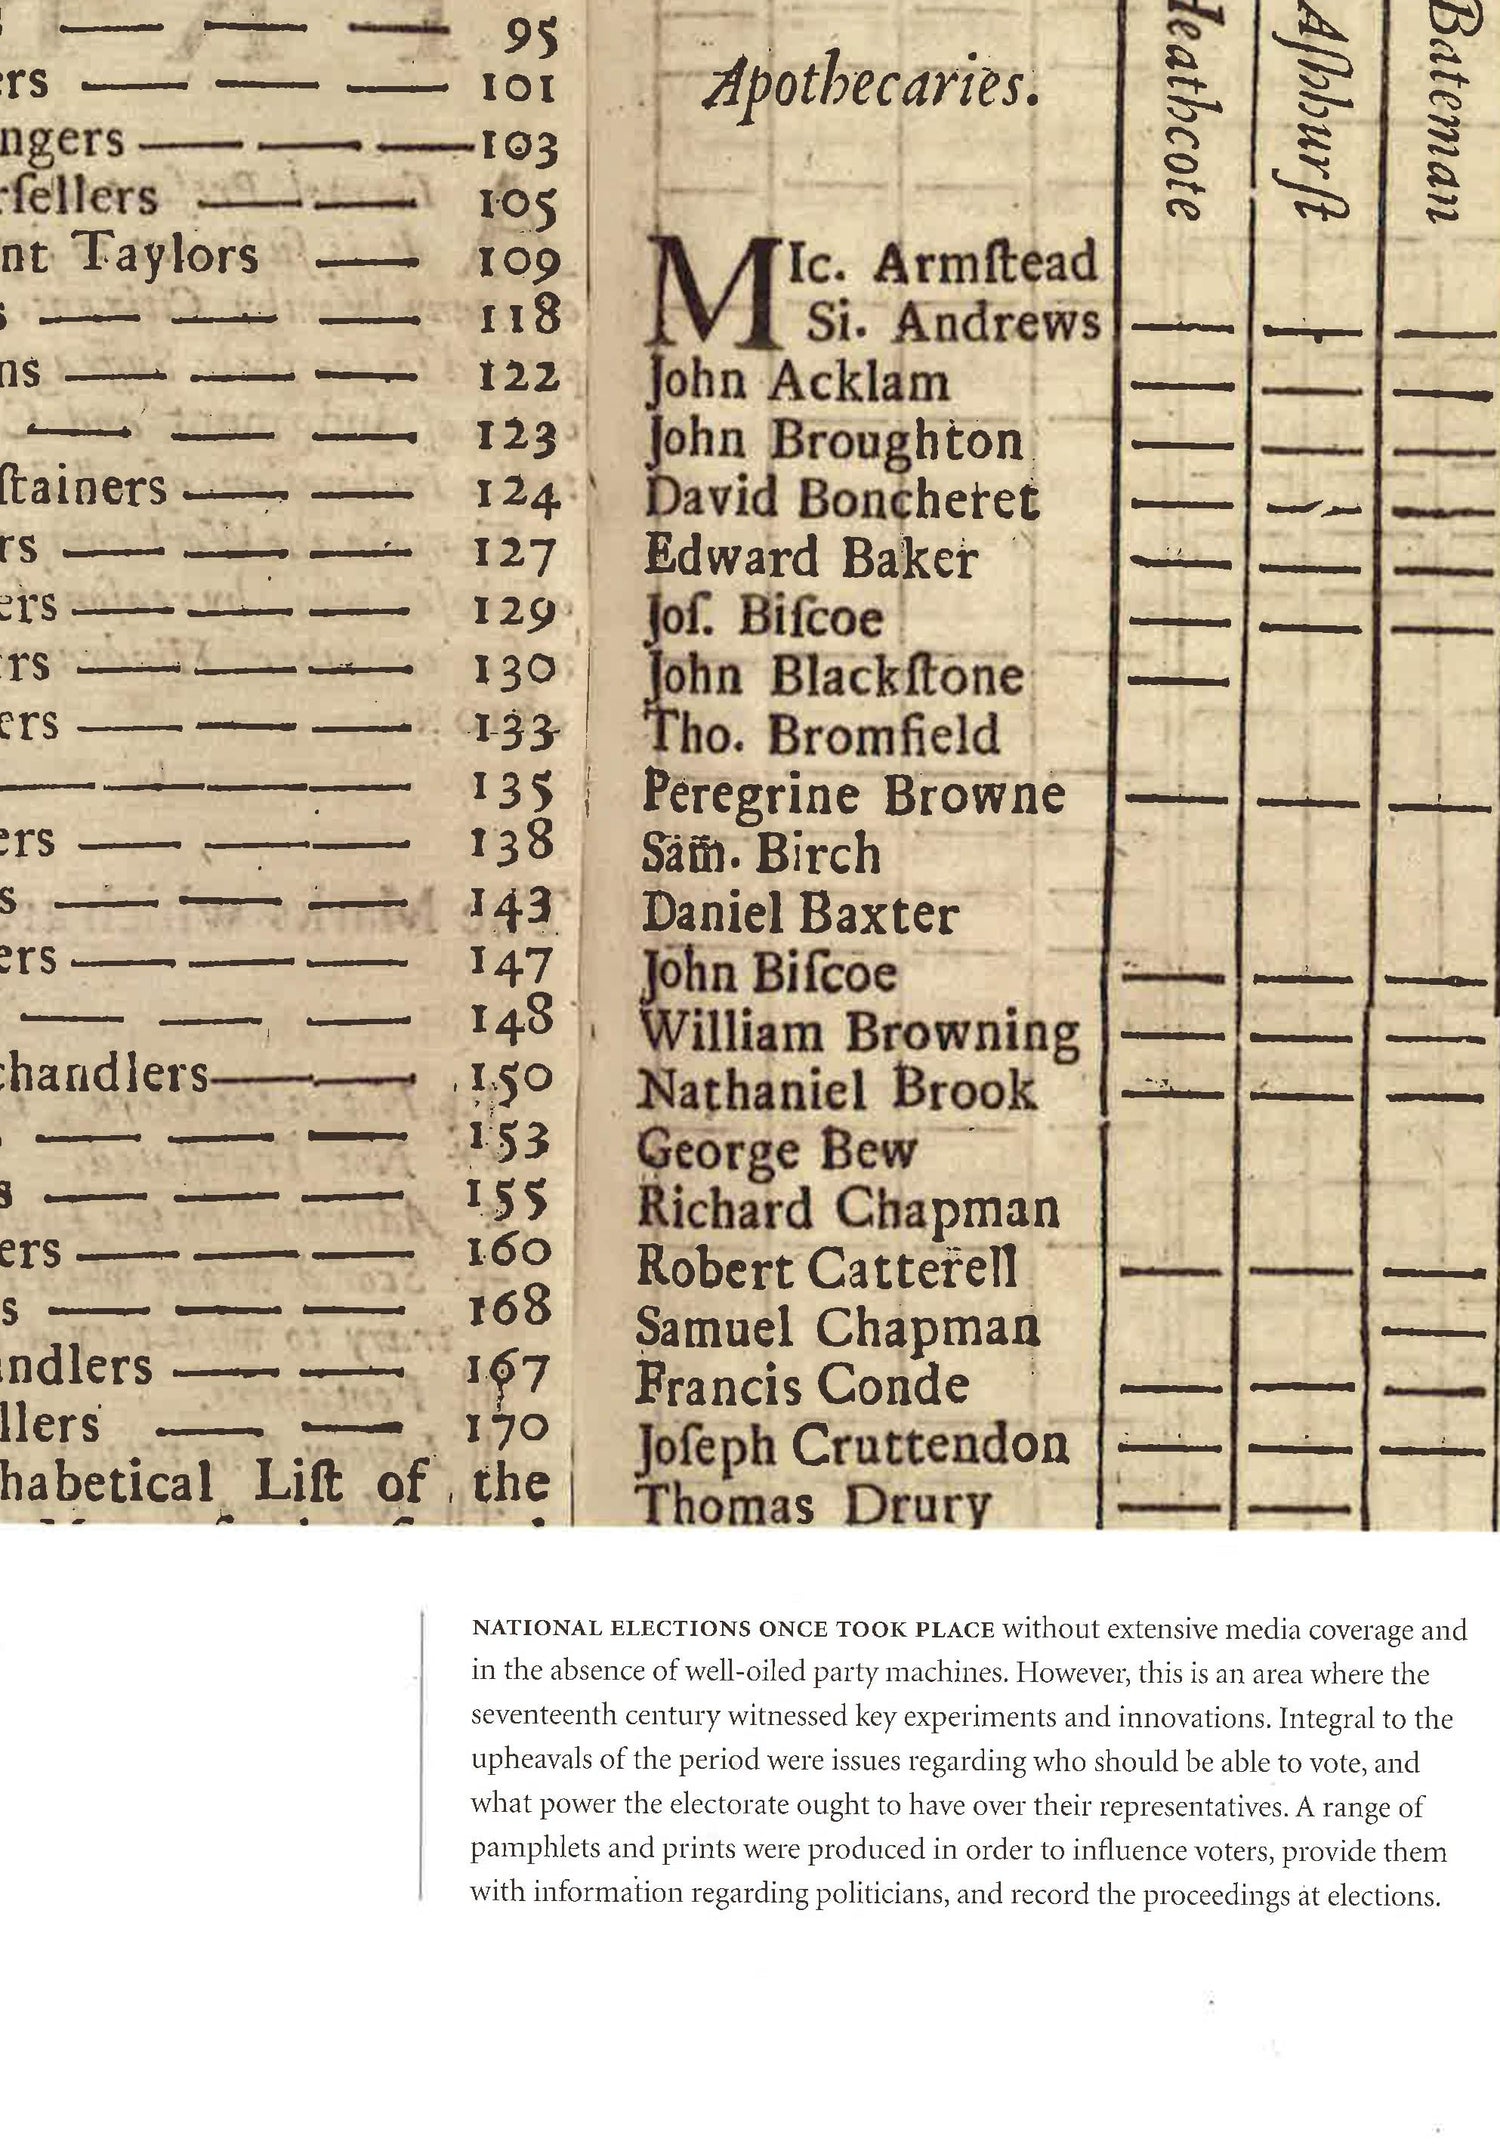 95
ers — — — 101
ngers — — — 103
rſellers — — 105
nt Taylors — 109
s — — — 118
ns — — — 122
— — — 123
ſtainers — — 124
rs — — — 127
ers — — — 129
rs — — — 130
ers — — — 133
— — — — 135
ers — — — 138
s — — — 143
ers — — — 147
— — — 148
chandlers — — 150
— — — 153
s — — — 155
ers — — — 160
s — — — 168
andlers — — 167
llers — — 170
habetical Liſt of the
Apothecaries.
Heathcote
Aſhhurſt
Bateman
MIc. Armſtead
Si. Andrews — — —
John Acklam — — —
John Broughton — — —
David Boncheret — — —
Edward Baker — — —
Joſ. Biſcoe — — —
John Blackſtone —
Tho. Bromfield
Peregrine Browne — — —
Sam. Birch
Daniel Baxter
John Biſcoe — — —
William Browning — — —
Nathaniel Brook — — —
George Bew
Richard Chapman
Robert Catterell — — —
Samuel Chapman —
Francis Conde — — —
Joſeph Cruttendon — — —
Thomas Drury — —
NATIONAL ELECTIONS ONCE TOOK PLACE without extensive media coverage and
in the absence of well-oiled party machines. However, this is an area where the
seventeenth century witnessed key experiments and innovations. Integral to the
upheavals of the period were issues regarding who should be able to vote, and
what power the electorate ought to have over their representatives. A range of
pamphlets and prints were produced in order to influence voters, provide them
with information regarding politicians, and record the proceedings at elections.